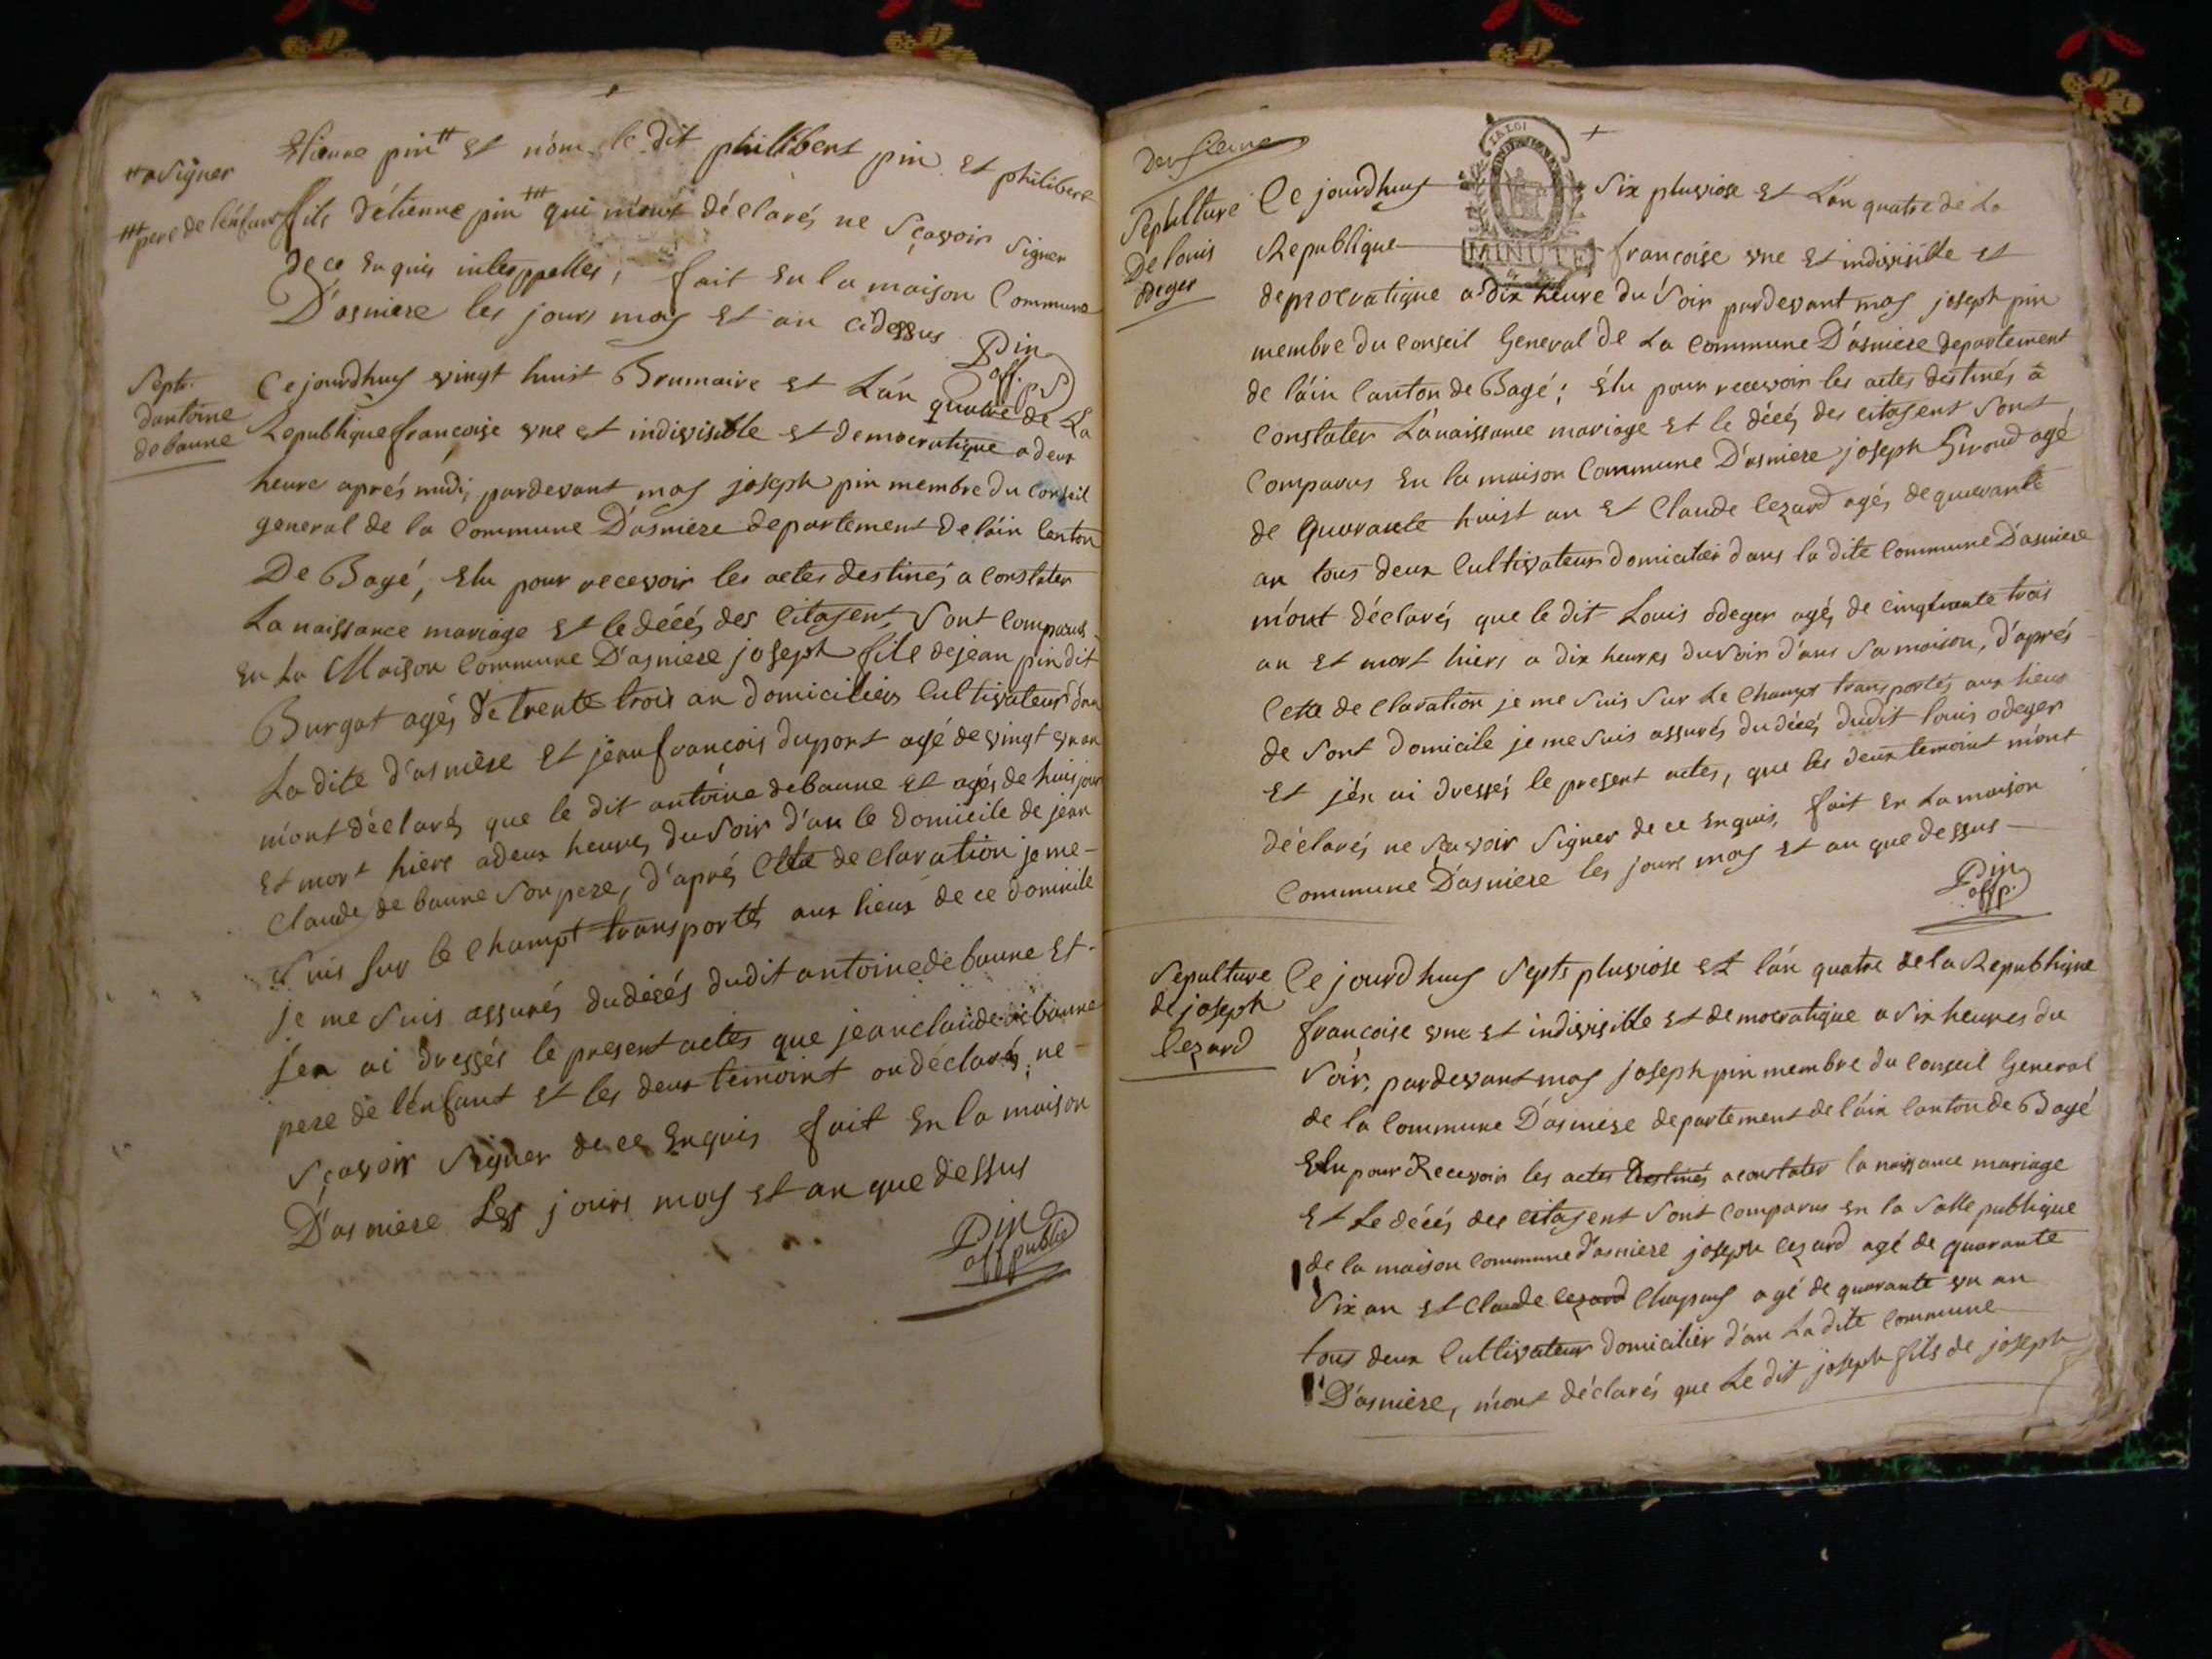 ++ a signer
+++ pere de lénfant
Etienne pin ++ Et nom le dit philibert pin Et philibert
fils d'étienne pin +++ qui m'ont déclarés ne Sçavoir Signer
de ce Enquis interppellés, fait En la maison Commune
D'asniere les jours moy Et an cidessus
Pin
off. p
Sept.
dantoine
debanne
Ce jourdhuy vingt huit Brumaire Et L'an quatre de La
Republique francoise vne et indivisible et democratique a deux
heure aprés midi, pardevant moy joseph pin membre du Conseil
general de la Commune D'asniere departement de láin Canton
De Bagé, Elu pour recevoir les actes destinés a Constater
La naissance mariage Et le décés des Citoyens, Sont Comparus
En La Maison Commune D'asniere joseph fils de jean pin dit
Burgat agés de trente trois an domiciliés Cultivateur dan
La dite d'asniere Et jean francois duport agé de vingt vn an
m'ont déclarés que le dit antoine debanne Et agés de huis jour
Et mort hiere a deux heures du Soir d'an le domicile de jean
Claude de banne Son pere, d'aprés Cette declaration je me -
Suis Sur le Champt transportés aux lieux de ce domicile
je me Suis assurés du décés dudit antoine de banne Et -
j'en ai dressés le present actes que jean claude de banne
pere de lénfant Et les deux temoint on déclarés, ne -
Sçavoir Signer de ce Enquis fait En la maison
D'asniere Les jours moy Et an que dessus
Pin
off public
LA LOI
MINUTE
Sepulture
De louis
Odeger
Ce jourdhuy Six pluviose Et L'an quatre de La
Republique francoise vne Et indivisible et
democratique a dix heure du Soir pardevant moy joseph pin
membre du Conseil General de La Commune D'asniere departement
de láin Canton de Bagé; Élu pour recevoir les actes destinés à
Constater La naissance mariage Et le décés des citoyent Sont
Comparus En la maison Commune D'asniere joseph Giroud agé
de Quarante huist an Et Claude lezard agés de quarante
an tous deux Cultivateur domicilier dans la dite Commune D'asniere
m'ont déclarés que le dit Louis odeger agés de cinquante trois
an Et mort hiers a dix heures du Soir d'ans Sa maison, d'aprés
Cette declaration je me Suis Sur Le Champt transportés aux lieux
de Sont Domicile je me Suis assurés du décés dudit louis odeger
Et j'én ai dressés le present actes, que les deux temoint m'ont
déclarés ne Sçavoir Signer de ce Enquis, fait En La maison
Commune D'asniere les jours moy Et an que dessus
Pin
off p.
Sepulture
de joseph
lezard
Ce jourdhuy Septs pluviose et l'án quatre de la Republique
francoise vne et indivisible Et democratique a Six heures du
Soir, pardevant moy joseph pin membre du Conseil General
de la Commune D'asniere departement de láin Canton de Bagé
Elu pour Recevoir les actes Destinés a constater la naissance mariage
Et Le décés des citoyent Sont Comparus En la Salle publique
de la maison Commune d'asniere joseph lezard agé de quarante
Six an Et Claude lezard Chapuy agé de quarante vn an
tous deux Cultivateur domicilier d'an La dite Commune
D'asniere, m'ont déclarés que Le dit joseph fils de joseph